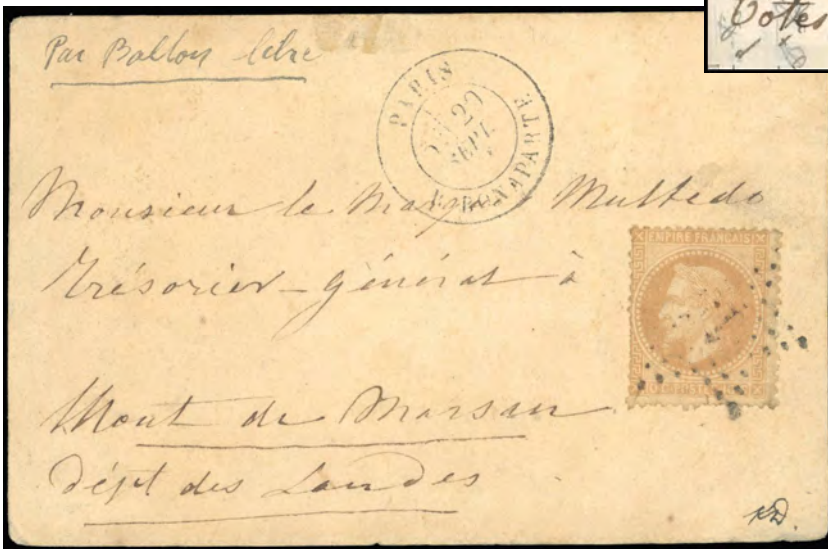 Votes
Par Ballon libre
PARIS
29
SEPT.
R. BONAPARTE
Monsieur le Multedo
Trésorier-général à
EMPIRE FRANÇAIS
Mont de Marsan
Dépt des Landes